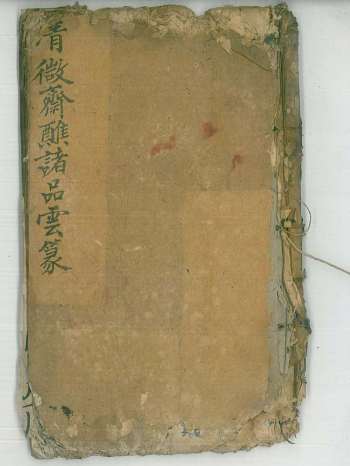 清微齋醮諸品雲篆